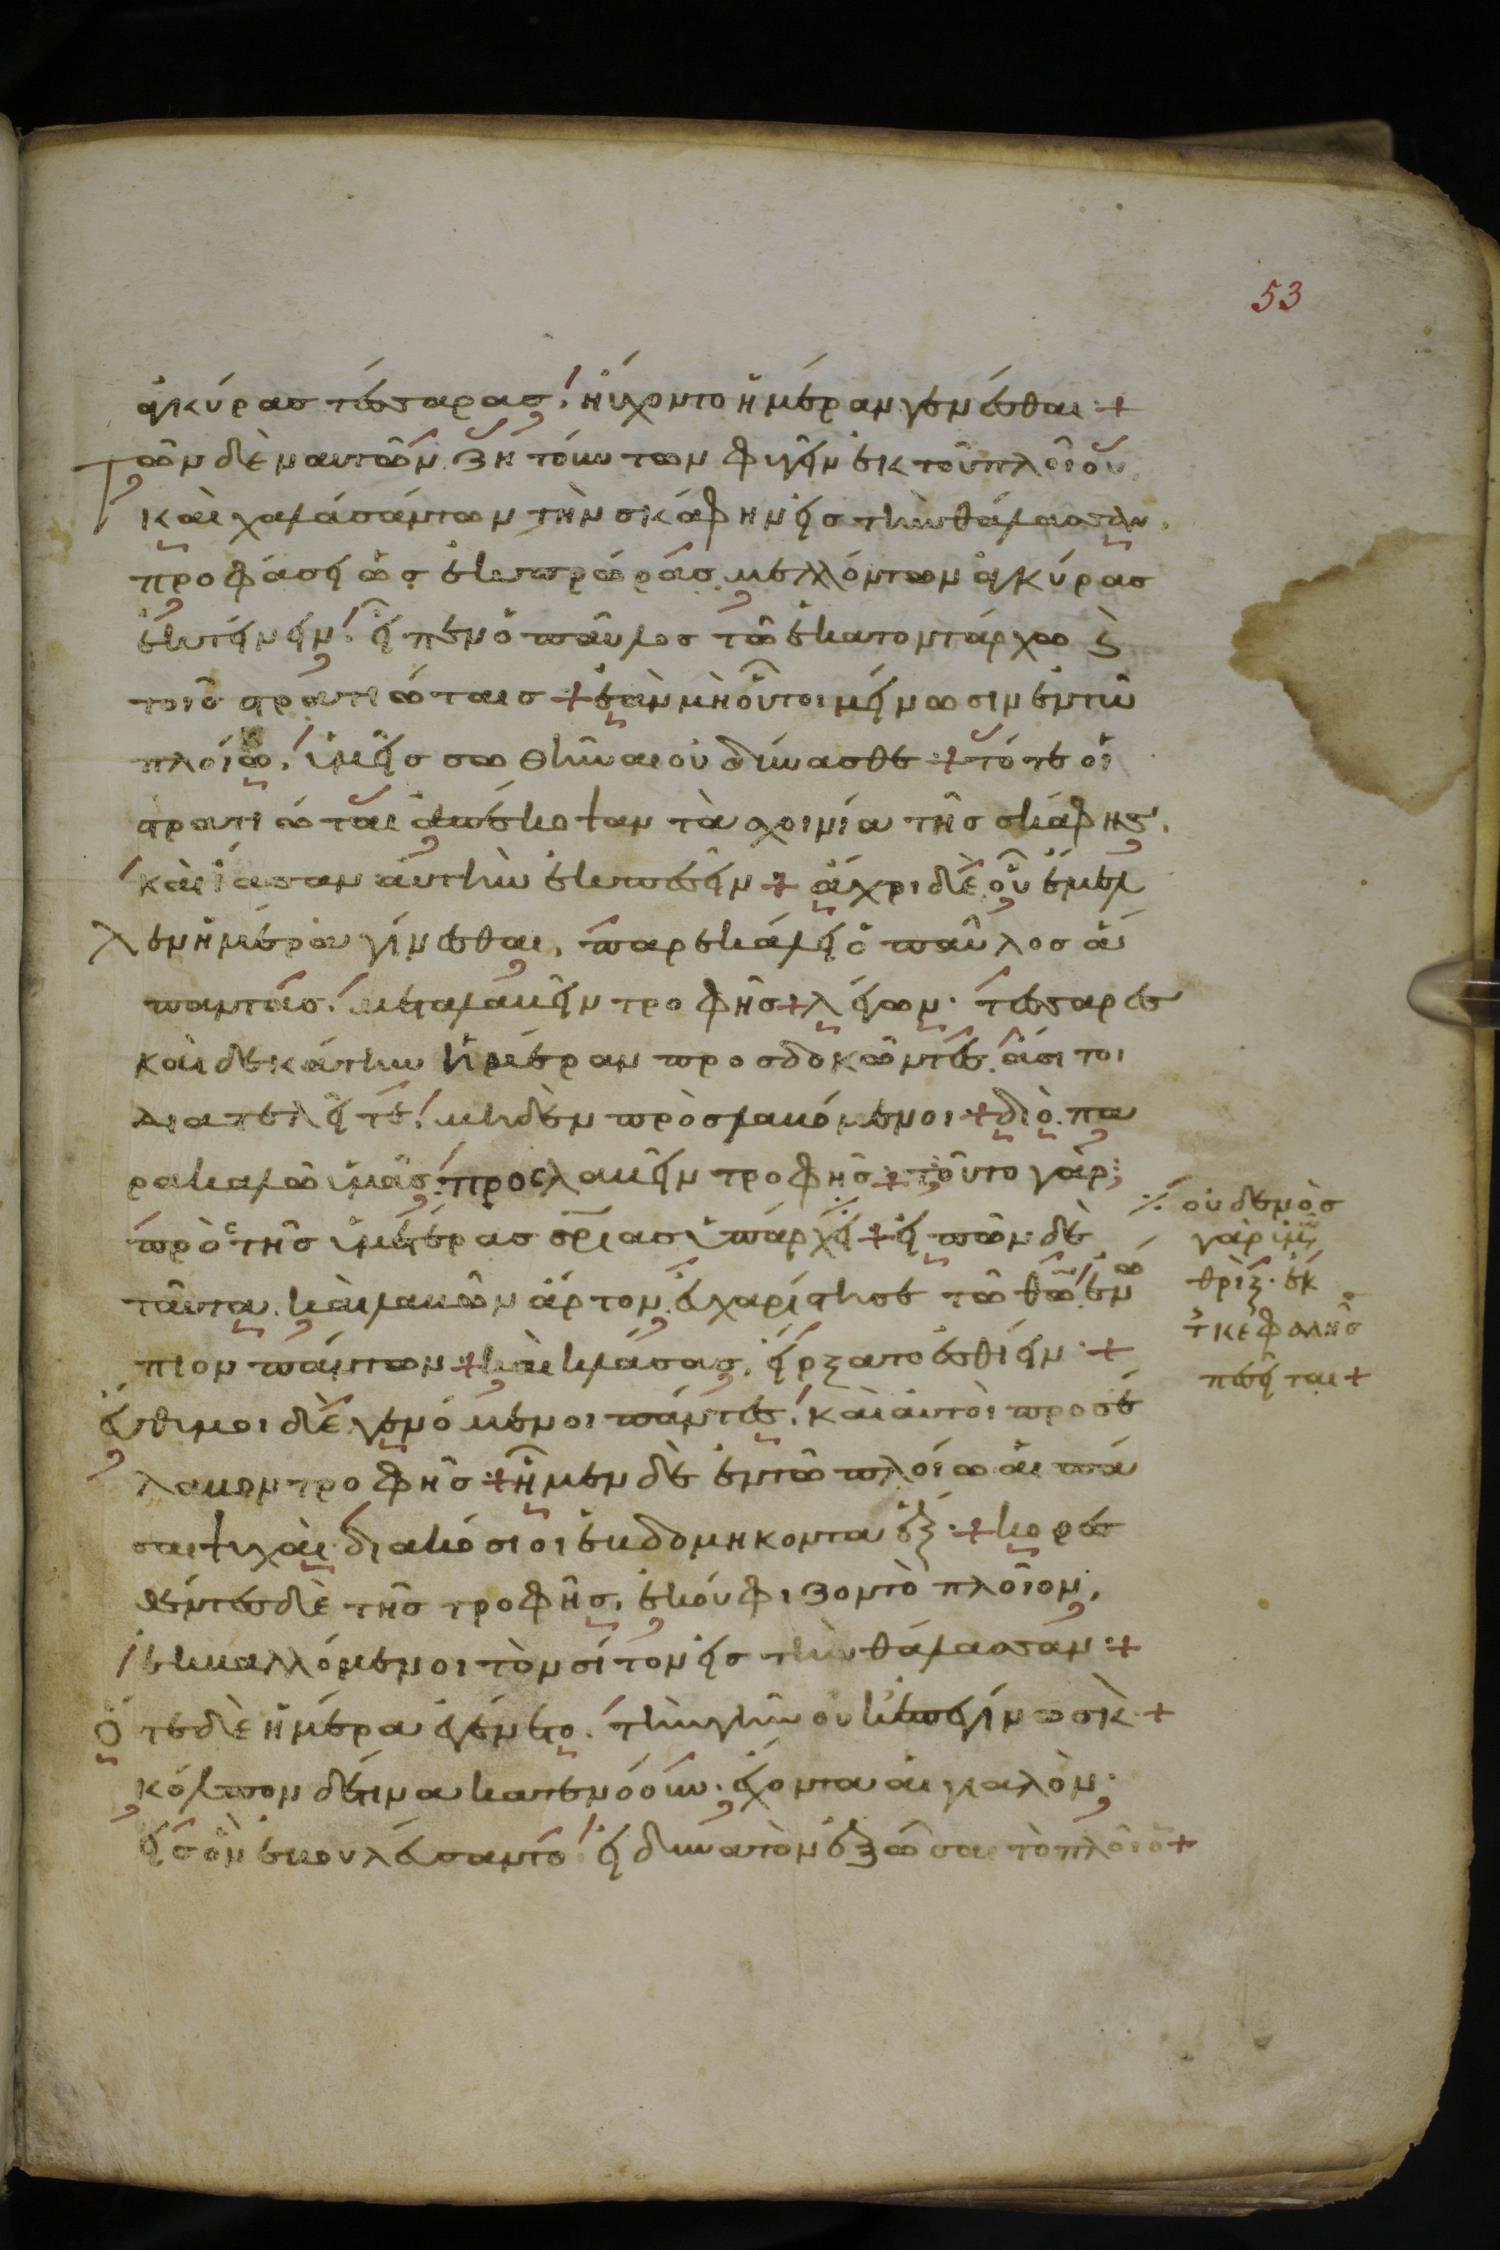 53
ἀγκύρας τέσσαρας, ηὔχοντο ἡμέραν γενέσθαι +
τῶν δὲ ναυτῶν ζητούντων φυγεῖν ἐκ τοῦ πλοίου,
καὶ χαλασάντων τὴν σκάφην εἰς τὴν θάλασσαν,
προφάσει ὡς ἐκ πρώρας μελλόντων ἀγκύρας
ἐκτείνειν, εἶπεν ὁ παῦλος τῶ ἑκατοντάρχω ϗ
τοῖς στρατιώταις + ἐὰν μὴ οὗτοι μείνωσιν ἐν τῶ
πλοίω, ὑμεῖς σωθῆναι οὐ δύνασθε + τότε οἱ
στρατιῶται ἀπέκοψαν τὰ σχοινία τῆς σκάφης,
καὶ εἴασαν αὐτὴν ἐκπεσεῖν + ἄχρι δὲ οὗ ἔμελ
λεν ἡμέρα γίνεσθαι, παρεκάλει ὁ παῦλος ἅ
παντας, μεταλαβεῖν τροφῆς + λέγων· τεσσαρεσ
καιδεκάτην ἡμέραν προσδοκῶντες ἄσιτοι
διατελεῖτε, μηδὲν προσλαβόμενοι + διὸ πα
ρακαλῶ ὑμᾶς, προσλαβεῖν τροφῆς + τοῦτο γὰρ
πρὸ τῆς ὑμετέρας σρίας ὑπάρχει + εἰπὼν δὲ
ταῦτα, καὶ λαβὼν ἄρτον, εὐχαρίστησε τῶ θῶ ἐνώ
πιον πάντων + καὶ κλάσας, ἤρξατο ἐσθίειν +
εὔθυμοι δὲ γενόμενοι πάντες, καὶ αὐτοὶ προσέ
λαβον τροφῆς + ἦμεν δὲ ἐν τῶ πλοίω αἱ πᾶ
σαι ψυχαὶ διακόσιοι ἑβδομήκοντα ἕξ + κορε
σθέντες δὲ τῆς τροφῆς, ἐκούφιζον τὸ πλοῖον,
ἐκβαλλόμενοι τὸν σῖτον εἰς τὴν θάλασσαν +
ὅτε δὲ ἡμέρα ἐγένετο, τὴν γῆν οὐκ ἐπεγίνωσκὸ +
κόλπον δέ τινα κατενόουν ἔχοντα αἰγιαλὸν,
εἰς ὃν ἐβουλεύσαντο, εἰ δυνατὸν ἐξῶσαι τὸ πλοῖο +
⁒ οὐδενὸς
γὰρ ὑμῶν
θρὶξ ἐκ
τ κεφαλῆς
πεσεῖται +